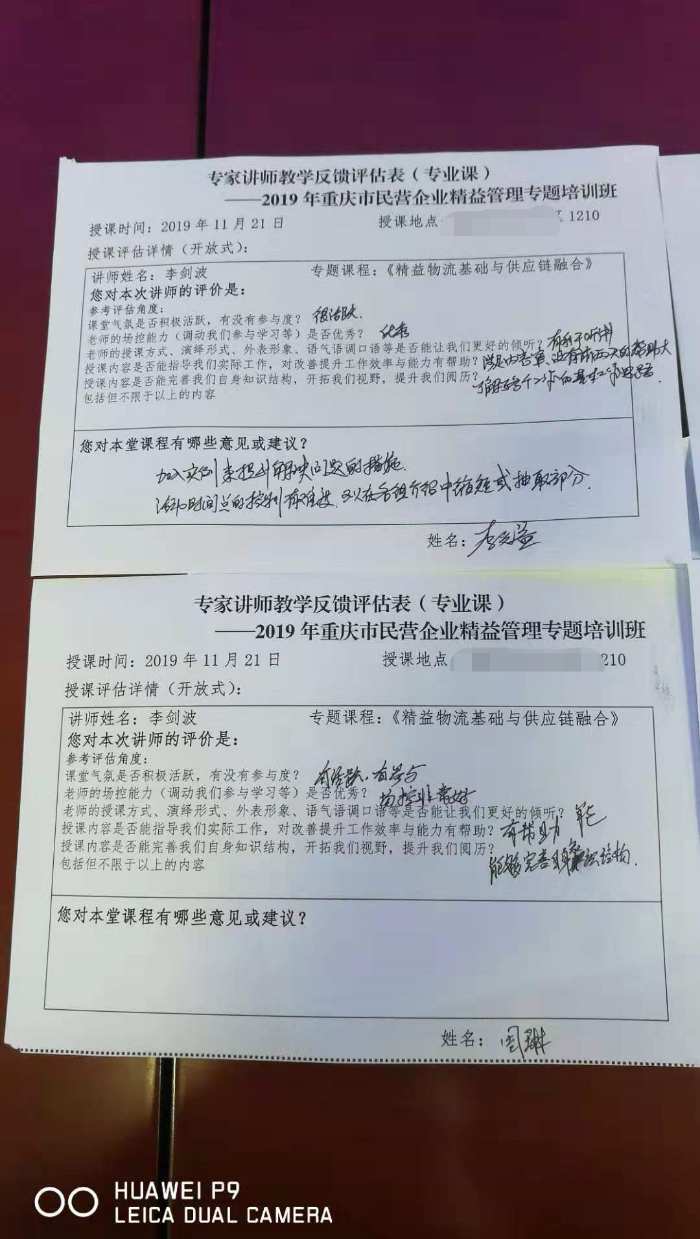 专家讲师教学反馈评估表（专业课）
——2019 年重庆市民营企业精益管理专题培训班
授课时间：2019 年 11 月 21 日 授课地点 1210
授课评估详情（开放式）：
讲师姓名：李剑波 专题课程：《精益物流基础与供应链融合》
您对本次讲师的评价是：
参考评估角度：
课堂气氛是否积极活跃，有没有参与度？ 很活跃
老师的场控能力（调动我们参与学习等）是否优秀？ 优秀
老师的授课方式、演绎形式、外表形象、语气语调口语等是否能让我们更好的倾听？
授课内容是否能指导我们实际工作，对改善提升工作效率与能力有帮助？
授课内容是否能完善我们自身知识结构，开拓我们视野，提升我们阅历？
包括但不限于以上的内容
您对本堂课程有哪些意见或建议？
加入实例来提升解决问题的措施
时间点的控制 可以在各组介绍中缩短或抽取部分.
姓名：
专家讲师教学反馈评估表（专业课）
——2019 年重庆市民营企业精益管理专题培训班
授课时间：2019 年 11 月 21 日 授课地点 210
授课评估详情（开放式）：
讲师姓名：李剑波 专题课程：《精益物流基础与供应链融合》
您对本次讲师的评价是：
参考评估角度：
课堂气氛是否积极活跃，有没有参与度？ 有活跃、有参与
老师的场控能力（调动我们参与学习等）是否优秀？ 场控非常好
老师的授课方式、演绎形式、外表形象、语气语调口语等是否能让我们更好的倾听？ 能
授课内容是否能指导我们实际工作，对改善提升工作效率与能力有帮助？ 有帮助
授课内容是否能完善我们自身知识结构，开拓我们视野，提升我们阅历？ 能够完善自身知识结构.
包括但不限于以上的内容
您对本堂课程有哪些意见或建议？
姓名： 周琳
HUAWEI P9
LEICA DUAL CAMERA